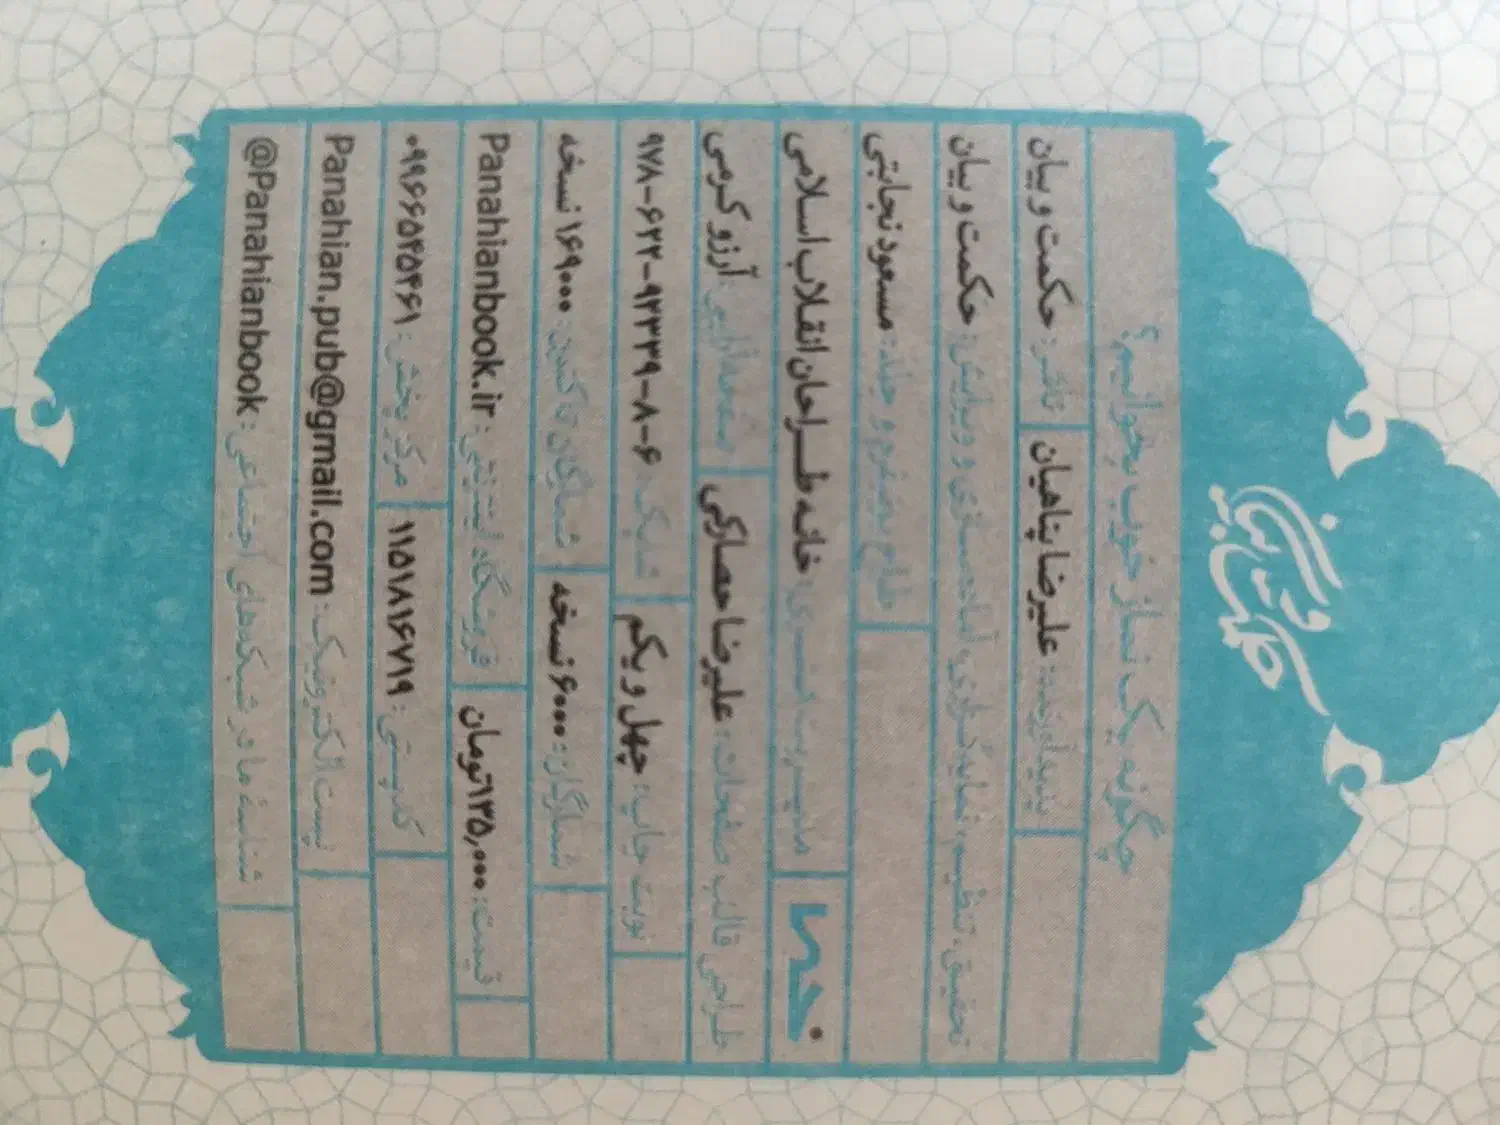 حکمت و بیان
چگونه یک نماز خوب بخوانیم؟
پدیدآورنده: علیرضا پناهیان ناشر: حکمت و بیان
تحقیق، تنظیم، نمایه‌گذاری، آماده‌سازی و ویرایش: حکمت و بیان
طراح یونیفرم و جلد: مسعود نجابتی
مدیریت هنـــری: خانـه طــراحان انقـلاب اسـلامی
طراحی قالب صفحات: علیرضا حصارکی صفحه‌آرایی: آرزو کرمی
نوبت چاپ: چهل و یکم شابک: ۹۷۸-۶۲۲-۹۲۳۳۹-۸-۶
شمارگان: ۶۰۰۰ نسخه شمارگان تاکنون: ۱۶۹۰۰۰ نسخه
قیمت: ۱۳۵,۰۰۰تومان فروشگاه اینترنتی: Panahianbook.ir
کدپستی: ۱۱۵۱۸۱۶۷۱۹ مرکز پخش: ۰۹۹۶۶۵۴۵۴۶۱
پست الکترونیک: Panahian.pub@gmail.com
شناسۀ ما در شبکه‌های اجتماعی: @Panahianbook